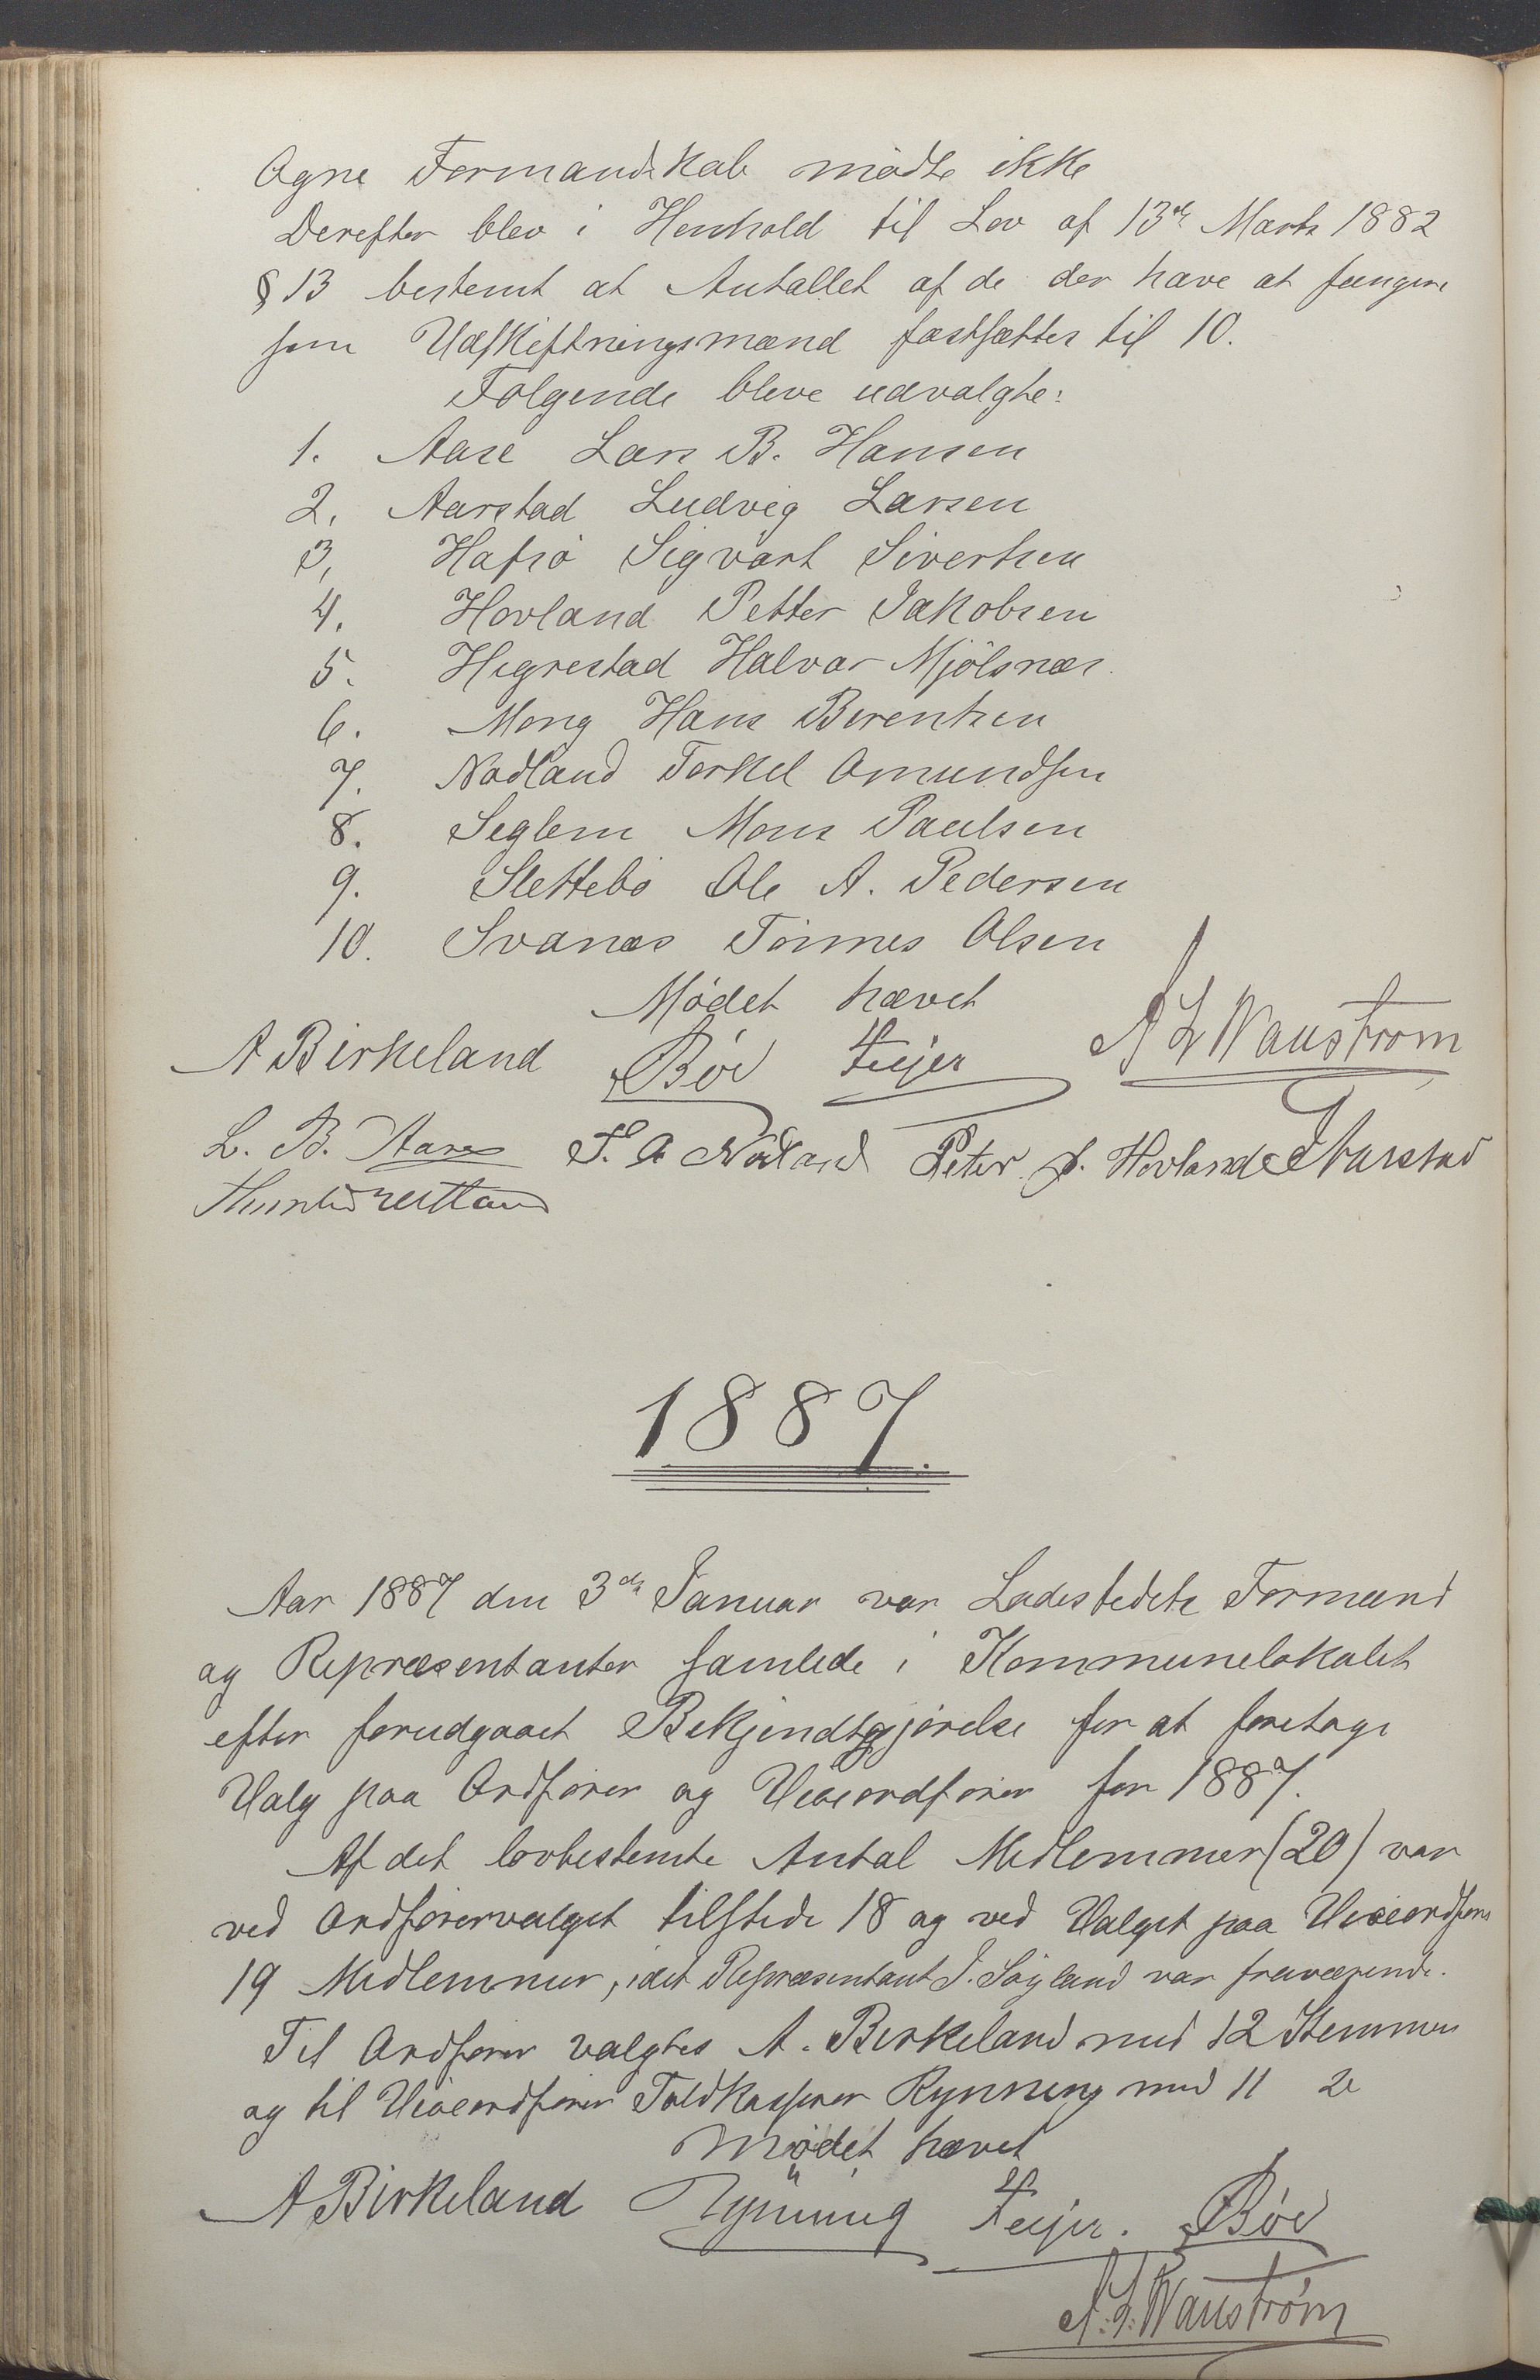 Ogne Formandskab mødte ikke
Derefter blev i Henhold til Lov af 13de Marts 1882
§ 13 bestemt at Antallet af de der have at fungere
som Udskiftningsmænd fastsættes til 10.
Følgende bleve udvalgte:
1. Aase Lars B. Hansen
2. Aarstad Ludvig Larsen
3. Hafsö Sigvart Sivertsen
4. Hovland Petter Jakobsen
5. Hegrestad Halvor Mjölsnæs.
6. Mong Hans Berentsen
7. Nodland Torkel Omundsen
8. Seglem Mons Paulsen
9. Slettebö Ole A. Pedersen
10. Svanæs Tönnes Olsen
Mödet hævet
A Birkeland Bøe Feyer A L Wauström
L. B. Aase T. O Nodland Peter J. Hovland Aarstad
1887.
Aar 1887 den 3de Januar var Ladestedets Formænd
og Repræsentanter samlede i Kommunelokalet
efter forudgaaet Bekjendtgjörelse for at foretage
Valg paa Ordförer og Viceordförer for 1887.
Af det lovbestemte Antal Medlemmer (20) var
ved Ordförervalget tilstede 18 og ved Valget paa Viceordförer
19 Medlemmer, idet Repræsentant J. Søyland var fraværende.
Til Ordförer valgtes A. Birkeland med 12 Stemmer
og til Viceordförer Toldkasserer Rynning med 11
Mødet hævet
A Birkeland Rynning Feyer. Bøe
A. L. Wauström